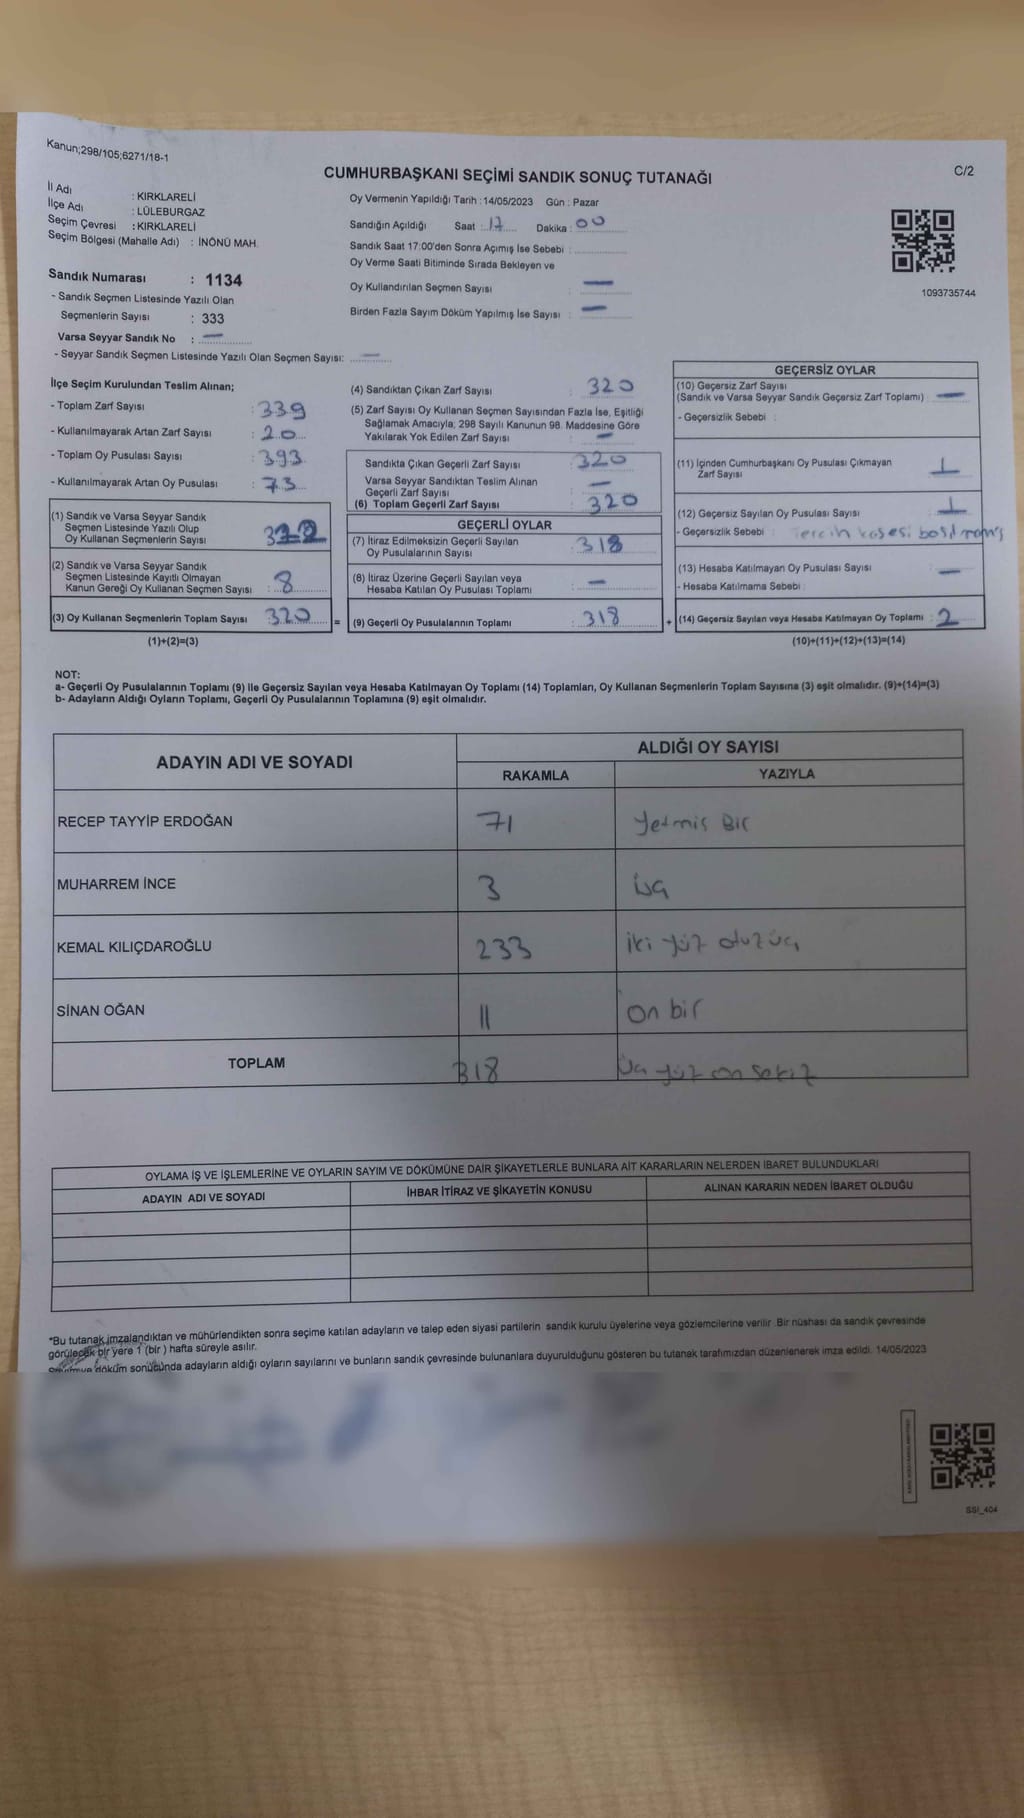 Kanun;298/105;6271/18-1
CUMHURBAŞKANI SEÇİMİ SANDIK SONUÇ TUTANAĞI
C/2
İl Adı : KIRKLARELİ
İlçe Adı : LÜLEBURGAZ
Seçim Çevresi : KIRKLARELİ
Seçim Bölgesi (Mahalle Adı) : İNÖNÜ MAH.
Sandık Numarası : 1134
- Sandık Seçmen Listesinde Yazılı Olan
Seçmenlerin Sayısı : 333
Varsa Seyyar Sandık No : —
- Seyyar Sandık Seçmen Listesinde Yazılı Olan Seçmen Sayısı: —
Oy Vermenin Yapıldığı Tarih : 14/05/2023 Gün : Pazar
Sandığın Açıldığı Saat : 17 Dakika : 00
Sandık Saat 17:00'den Sonra Açımış İse Sebebi :
Oy Verme Saati Bitiminde Sırada Bekleyen ve
Oy Kullandırılan Seçmen Sayısı : —
Birden Fazla Sayım Döküm Yapılmış İse Sayısı : —
1093735744
İlçe Seçim Kurulundan Teslim Alınan;
- Toplam Zarf Sayısı : 339
- Kullanılmayarak Artan Zarf Sayısı : 20
- Toplam Oy Pusulası Sayısı : 393
- Kullanılmayarak Artan Oy Pusulası : 73
(1) Sandık ve Varsa Seyyar Sandık
Seçmen Listesinde Yazılı Olup
Oy Kullanan Seçmenlerin Sayısı
(2) Sandık ve Varsa Seyyar Sandık
Seçmen Listesinde Kayıtlı Olmayan
Kanun Gereği Oy Kullanan Seçmen Sayısı : 8
(3) Oy Kullanan Seçmenlerin Toplam Sayısı 320 =
(1)+(2)=(3)
(4) Sandıktan Çıkan Zarf Sayısı : 320
(5) Zarf Sayısı Oy Kullanan Seçmen Sayısından Fazla İse, Eşitliği
Sağlamak Amacıyla, 298 Sayılı Kanunun 98. Maddesine Göre
Yakılarak Yok Edilen Zarf Sayısı : —
Sandıkta Çıkan Geçerli Zarf Sayısı : 320
Varsa Seyyar Sandıktan Teslim Alınan
Geçerli Zarf Sayısı : —
(6) Toplam Geçerli Zarf Sayısı : 320
GEÇERLİ OYLAR
(7) İtiraz Edilmeksizin Geçerli Sayılan
Oy Pusulalarının Sayısı : 318
(8) İtiraz Üzerine Geçerli Sayılan veya
Hesaba Katılan Oy Pusulası Toplamı : —
(9) Geçerli Oy Pusulalarının Toplamı : 318 +
GEÇERSİZ OYLAR
(10) Geçersiz Zarf Sayısı
(Sandık ve Varsa Seyyar Sandık Geçersiz Zarf Toplamı) : —
- Geçersizlik Sebebi :
(11) İçinden Cumhurbaşkanı Oy Pusulası Çıkmayan
Zarf Sayısı : 1
(12) Geçersiz Sayılan Oy Pusulası Sayısı : 1
- Geçersizlik Sebebi : Tercih kasesi
(13) Hesaba Katılmayan Oy Pusulası Sayısı : —
- Hesaba Katılmama Sebebi :
(14) Geçersiz Sayılan veya Hesaba Katılmayan Oy Toplamı : 2
(10)+(11)+(12)+(13)=(14)
NOT:
a- Geçerli Oy Pusulalarının Toplamı (9) ile Geçersiz Sayılan veya Hesaba Katılmayan Oy Toplamı (14) Toplamları, Oy Kullanan Seçmenlerin Toplam Sayısına (3) eşit olmalıdır. (9)+(14)=(3)
b- Adayların Aldığı Oyların Toplamı, Geçerli Oy Pusulalarının Toplamına (9) eşit olmalıdır.
ADAYIN ADI VE SOYADI
ALDIĞI OY SAYISI
RAKAMLA YAZIYLA
RECEP TAYYİP ERDOĞAN 71 Yetmiş Bir
MUHARREM İNCE 3 üç
KEMAL KILIÇDAROĞLU 233 iki yüz otuz üç
SİNAN OĞAN 11 on bir
TOPLAM 318 Üç yüz on sekiz
OYLAMA İŞ VE İŞLEMLERİNE VE OYLARIN SAYIM VE DÖKÜMÜNE DAİR ŞİKAYETLERLE BUNLARA AİT KARARLARIN NELERDEN İBARET BULUNDUKLARI
ADAYIN ADI VE SOYADI İHBAR İTİRAZ VE ŞİKAYETİN KONUSU ALINAN KARARIN NEDEN İBARET OLDUĞU
*Bu tutanak imzalandıktan ve mühürlendikten sonra seçime katılan adayların ve talep eden siyasi partilerin sandık kurulu üyelerine veya gözlemcilerine verilir .Bir nüshası da sandık çevresinde
görülecek bir yere 1 (bir ) hafta süreyle asılır.
döküm sonucunda adayların aldığı oyların sayılarını ve bunların sandık çevresinde bulunanlara duyurulduğunu gösteren bu tutanak tarafımızdan düzenlenerek imza edildi. 14/05/2023
SSI_404